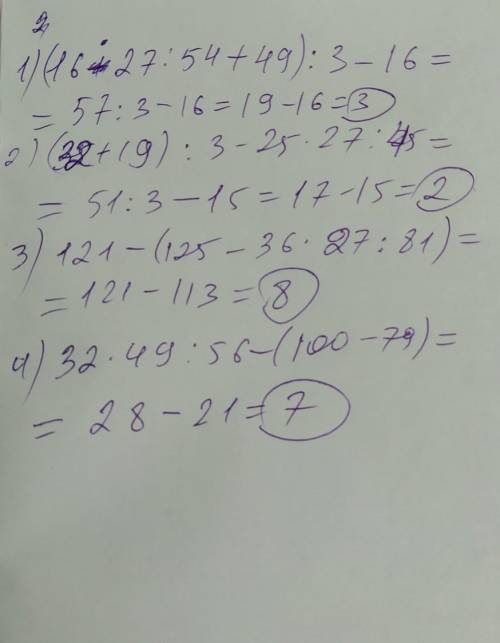 2
1) (16 · 27 : 54 + 49) : 3 - 16 =
= 57 : 3 - 16 = 19 - 16 = 3
2) (32 + 19) : 3 - 25 · 27 : 45 =
= 51 : 3 - 15 = 17 - 15 = 2
3) 121 - (125 - 36 · 27 : 81) =
= 121 - 113 = 8
4) 32 · 49 : 56 - (100 - 79) =
= 28 - 21 = 7